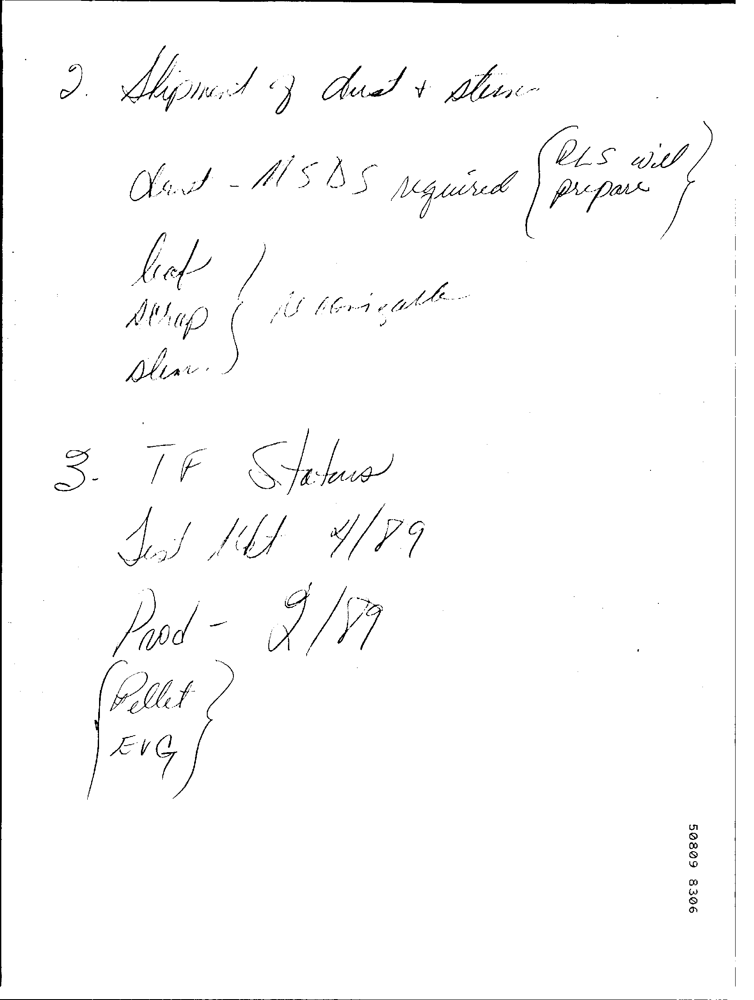 2. Shipment of dust + stem
dust - MSDS required { RLS will
prepare }
leaf
scrap }
stem.
3. TF Status
Test Mkt 4/89
Prod - 2/89
{ Pellet
EVG }
50809 8306